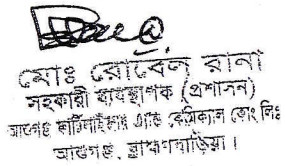 মোঃ রোবেল রানা
সহকারী ব্যবস্থাপক (প্রশাসন)
আশুগঞ্জ ফার্টিলাইজার এন্ড কেমিক্যাল কোং লিঃ
আশুগঞ্জ, ব্রাহ্মণবাড়িয়া।